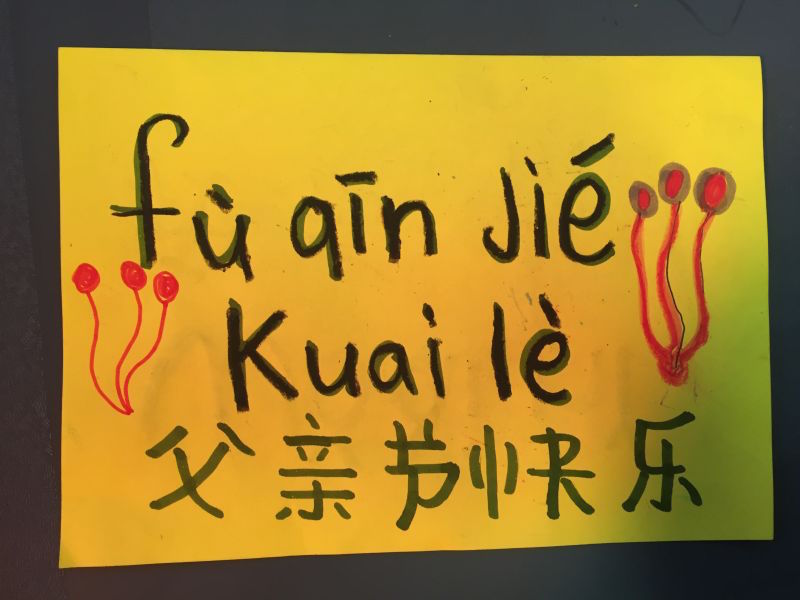 fù qīn jié
Kuai lè
父亲节快乐